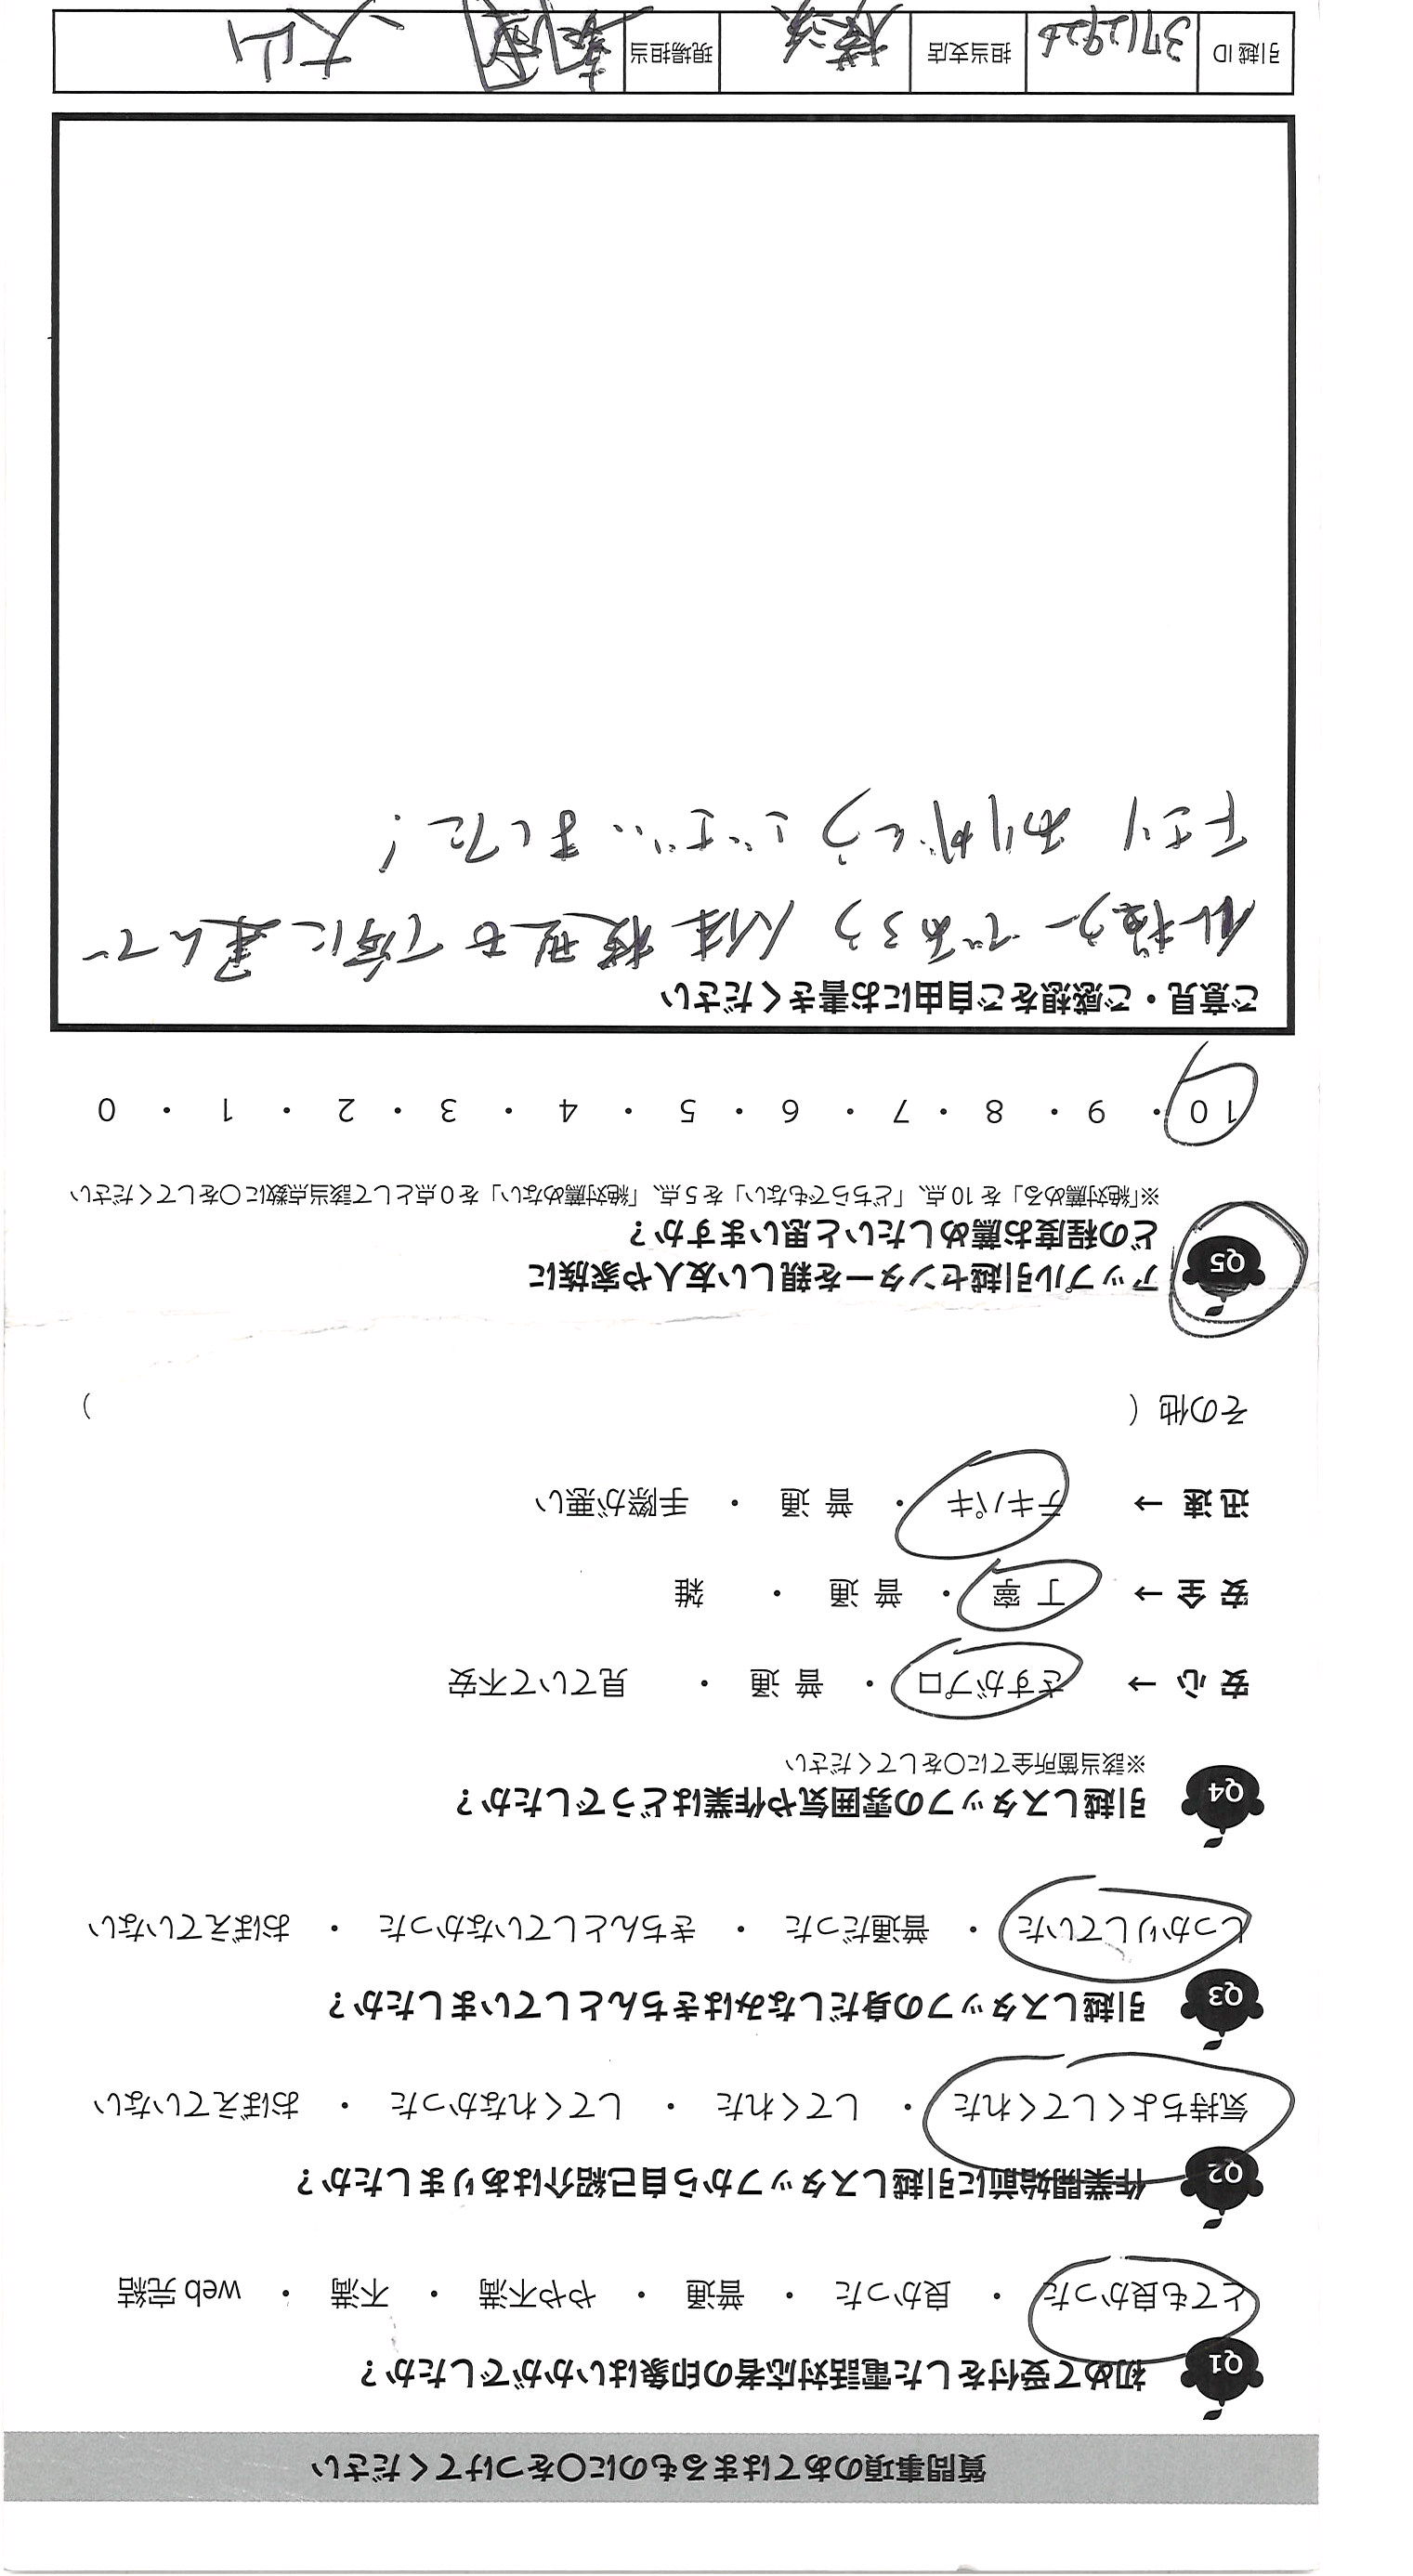 質問事項のあてはまるものに〇をつけてください
Q1 初めて受付をした電話対応者の印象はいかがでしたか?
とても良かった ・ 良かった ・ 普通 ・ やや不満 ・ 不満 ・ web 完結
Q2 作業開始前に引越しスタッフから自己紹介はありましたか?
気持ちよくしてくれた ・ してくれた ・ してくれなかった ・ おぼえていない
Q3 引越しスタッフの身だしなみはきちんとしていましたか?
しっかりしていた ・ 普通だった ・ きちんとしていなかった ・ おぼえていない
Q4 引越しスタッフの雰囲気や作業はどうでしたか?
※該当箇所全てに〇をしてください
安 心 → さすがプロ ・ 普 通 ・ 見ていて不安
安 全 → 丁 寧 ・ 普 通 ・ 雑
迅 速 → テキパキ ・ 普 通 ・ 手際が悪い
その他 ( )
Q5 アップル引越センターを親しい友人や家族に
どの程度お薦めしたいと思いますか?
※「絶対薦める」を 10 点、「どちらでもない」を 5 点、「絶対薦めない」を 0 点として該当点数に〇をしてください
10 ・ 9 ・ 8 ・ 7 ・ 6 ・ 5 ・ 4 ・ 3 ・ 2 ・ 1 ・ 0
ご意見・ご感想をご自由にお書きください
であろう 人体模型も丁寧に運んで
下さり ありがとうございました!
引越 ID 3712926 担当支店 横浜 現場担当 大山